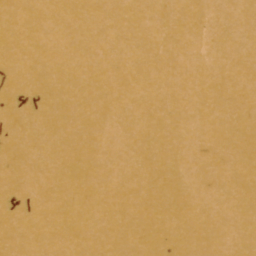 ۶۲
۶۱